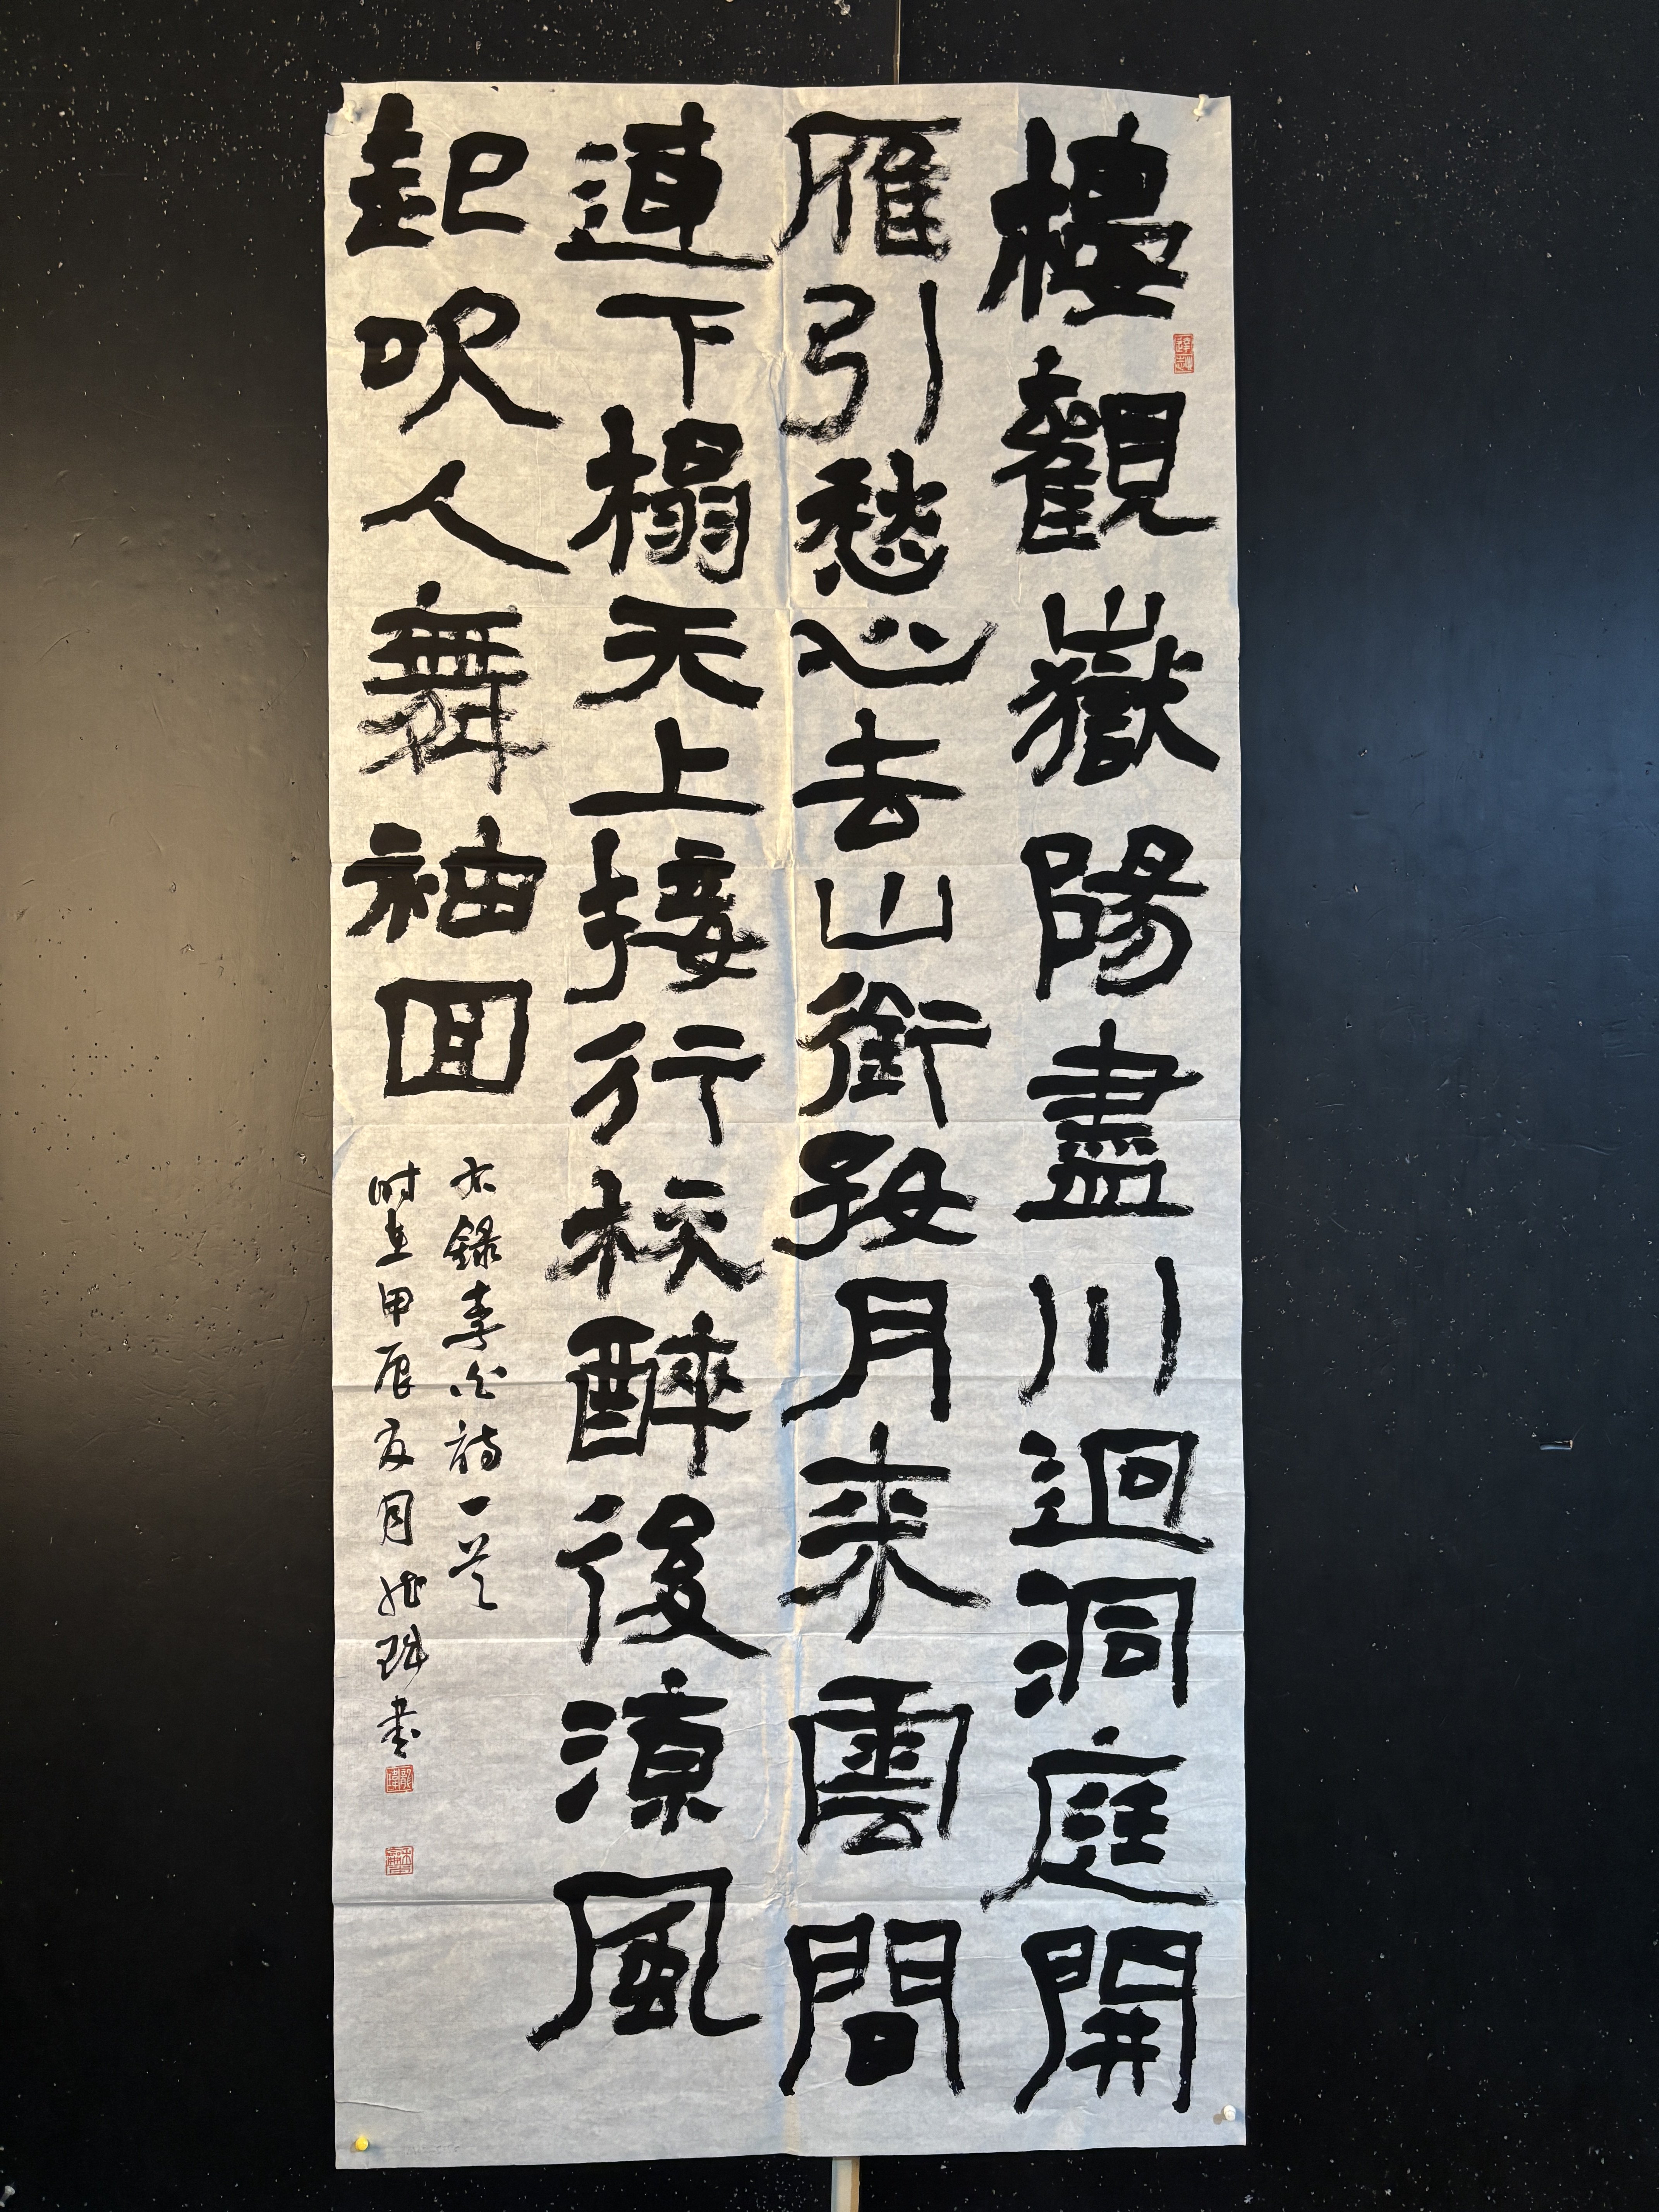 樓觀嶽陽盡川迥洞庭開
雁引愁心去山銜好月來雲間
連下榻天上接行杯醉後涼風
起吹人舞袖回
右錄李白詩一首
時在甲辰夏月 書